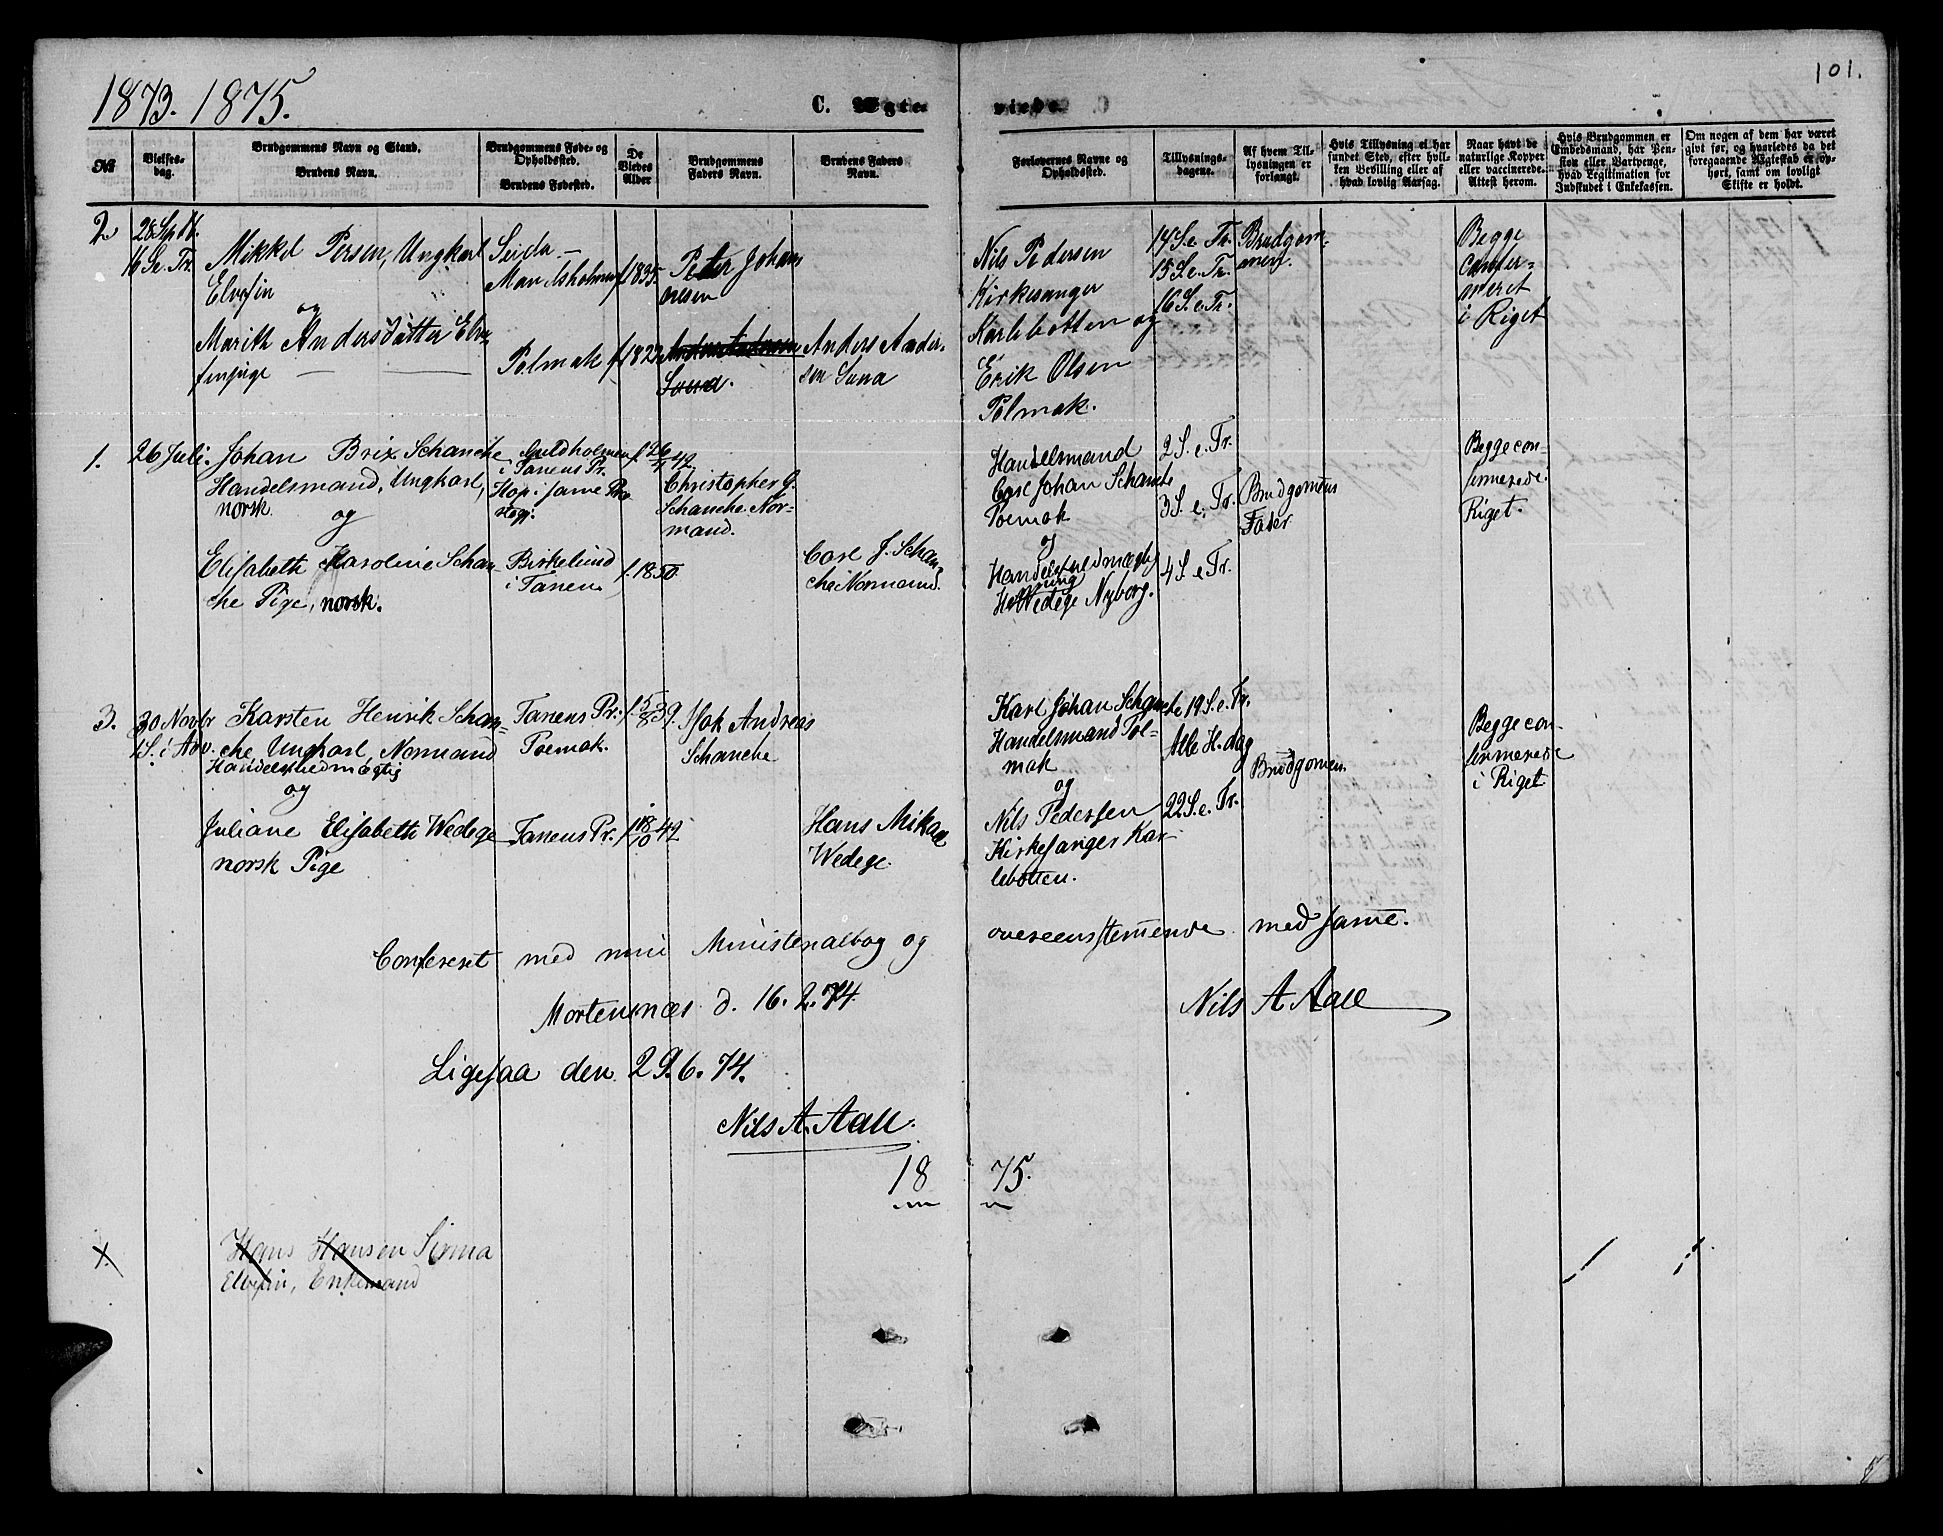 1873. 1875.
C. Ægte-
viede.
101.
№
Vielses-
dag.
Brudgommens Navn og Stand.
Brudens Navn.
Brudgommens Føde- og
Opholdssted.
Brudens Fødested.
De
Viedes
Alder
Brudgommens
Faders Navn.
Brudens Faders
Navn.
Forlovernes Navne og
Opholdssted.
Tillysnings-
dagene.
Af hvem Til-
lysningen er
forlangt.
Hvis Tillysning ei har
fundet Sted, efter hvil-
ken Bevilling eller af
hvad lovlig Aarsag.
Naar havt de
naturlige Kopper
eller vaccinerede.
Attest herom.
Hvis Brudgommen er
Embedsmand, har Pen-
sion eller Vartpenge,
hvad Legitimation for
Indskudet i Enkekassen.
Om nogen af dem har været
givt før, og hvorledes da det
foregaaende Ægteskab er op-
hørt, samt om lovligt
Skifte er holdt.
2
28 Sptb.
16 S.e. Tr.
Mikkel Persen, Ungkarl
Elvefin
og
Marith Andersdatter Elve-
finpige
Seida –
Polmak
f. 1835
f. 1823
Peter Johan
nesen
Anders Andersen
Anders Ander-
sen
Nils Pedersen
Kirkesanger
Karlebotten og
Erik Olsen
Polmak.
14 S.e. Tr.
15 S.e. Tr.
16 S.e. Tr.
Brudgom-
men.
Begge
confer-
meret
i Riget
1.
26 Juli.
Johan Brix Schanche
Handelsmand, Ungkarl,
norsk
og
Elisabeth Karoline Schan-
che Pige, norsk.
Guldholmen
i Tanens Pr.
Hop i same Præ
stegj.
Birkelund
i Tanen
f. 26/4 42
f. 1850.
Christopher G.
Schanche Nor-
mand.
Carl J. Schan
che Normand.
Handelsmand
Carl Johan Schanche
Polmak
og
Handelsfuldmægtig
Wedege Nyborg.
2 S. e. Tr.
3 S. e. Tr.
4 S. e Tr.
Brudgomens
Fader
Begge con-
firmerede i
Riget.
3.
30 Novbr
1 S. i Adv.
Karsten Henrik Schan-
che Ungkarl, Normand
Handelsfuldmægtig
og
Juliane Elisabeth Wedege
norsk Pige
Tanens Pr.
Polmak.
Tanens Pr.
f. 5/8 39.
f. 18/10 42
Isak Andreas
Schanche
Hans Mikal
Wedege.
Karl Johan Schanche
Handelsmand Pol-
mak
og
Nils Pedersen
Kirkesanger Kar-
lebotten.
19 S. e. Tr.
Alle H. dag
22 S. e. Tr.
Brudgomen.
Begge con
firmerede
i Riget
Confereret med min Ministerialbog og
overeenstemmende med same.
Mortensnæs d. 16. 2. 74.
Nils A Aall
Ligesaa den 29. 6. 74.
Nils A. Aall.
18 75.
1.
Hans Hansen Sirma
Elvefin, Enkemand